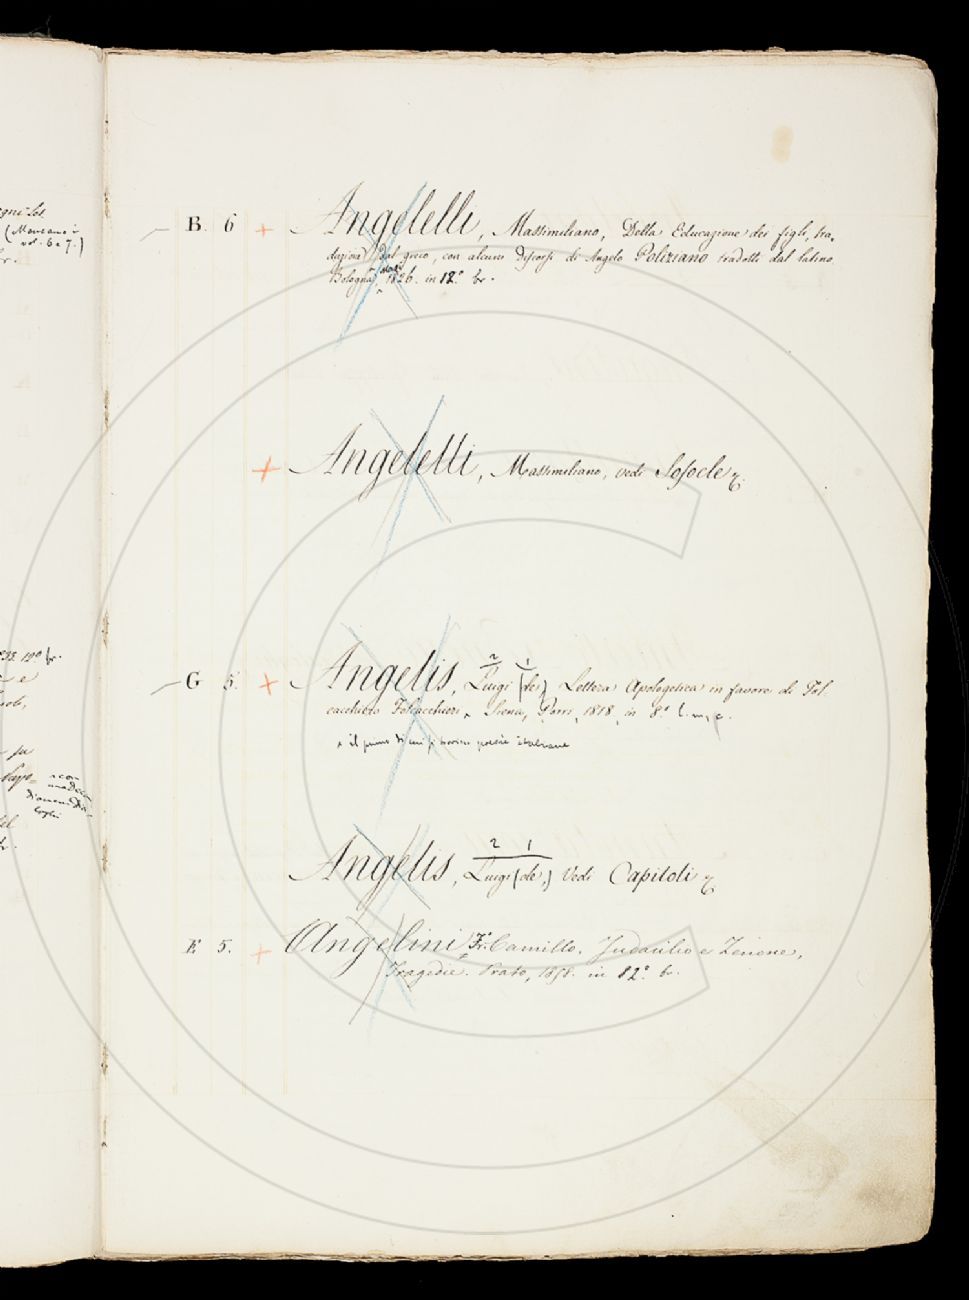 B. 6 + Angelelli, Massimiliano, Della Educazione dei figli, tra-
duzione dal greco, con alcuni Discorsi di Angelo Poliziano tradotti dal latino.
Bologna, 1826. in 12.º br.
+ Angeletti, Massimiliano, vedi Sofocle
G 5. + Angelis, Luigi (de,) Lettera Apologetica in favore di Fol
2 1
cacchiero Folcacchieri Siena, Porri, 1818, in 8.º l. m. p.
il primo di cui si hanno poesie italiane
2 1
Angelis, Luigi (de,) Vedi Capitoli
E 5. + Angelini Fr. Camillo. Judacilio e Zenone,
Tragedie. Prato, in 82.º br.
(Manca il
vol. 6 e 7.)
br.